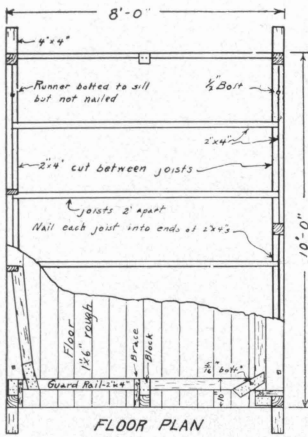 8'-0"
4"x4"
Runner botted to sill
but not nailed
1/2" Bolt
2"x4"
2"x4" cut between joists
joists 2' apart
Nail each joist into ends of 2"x4"s
10'-0"
Floor
1"x6" rough
Brace
Block
bolt
Guard Rail-2"x4"
FLOOR PLAN